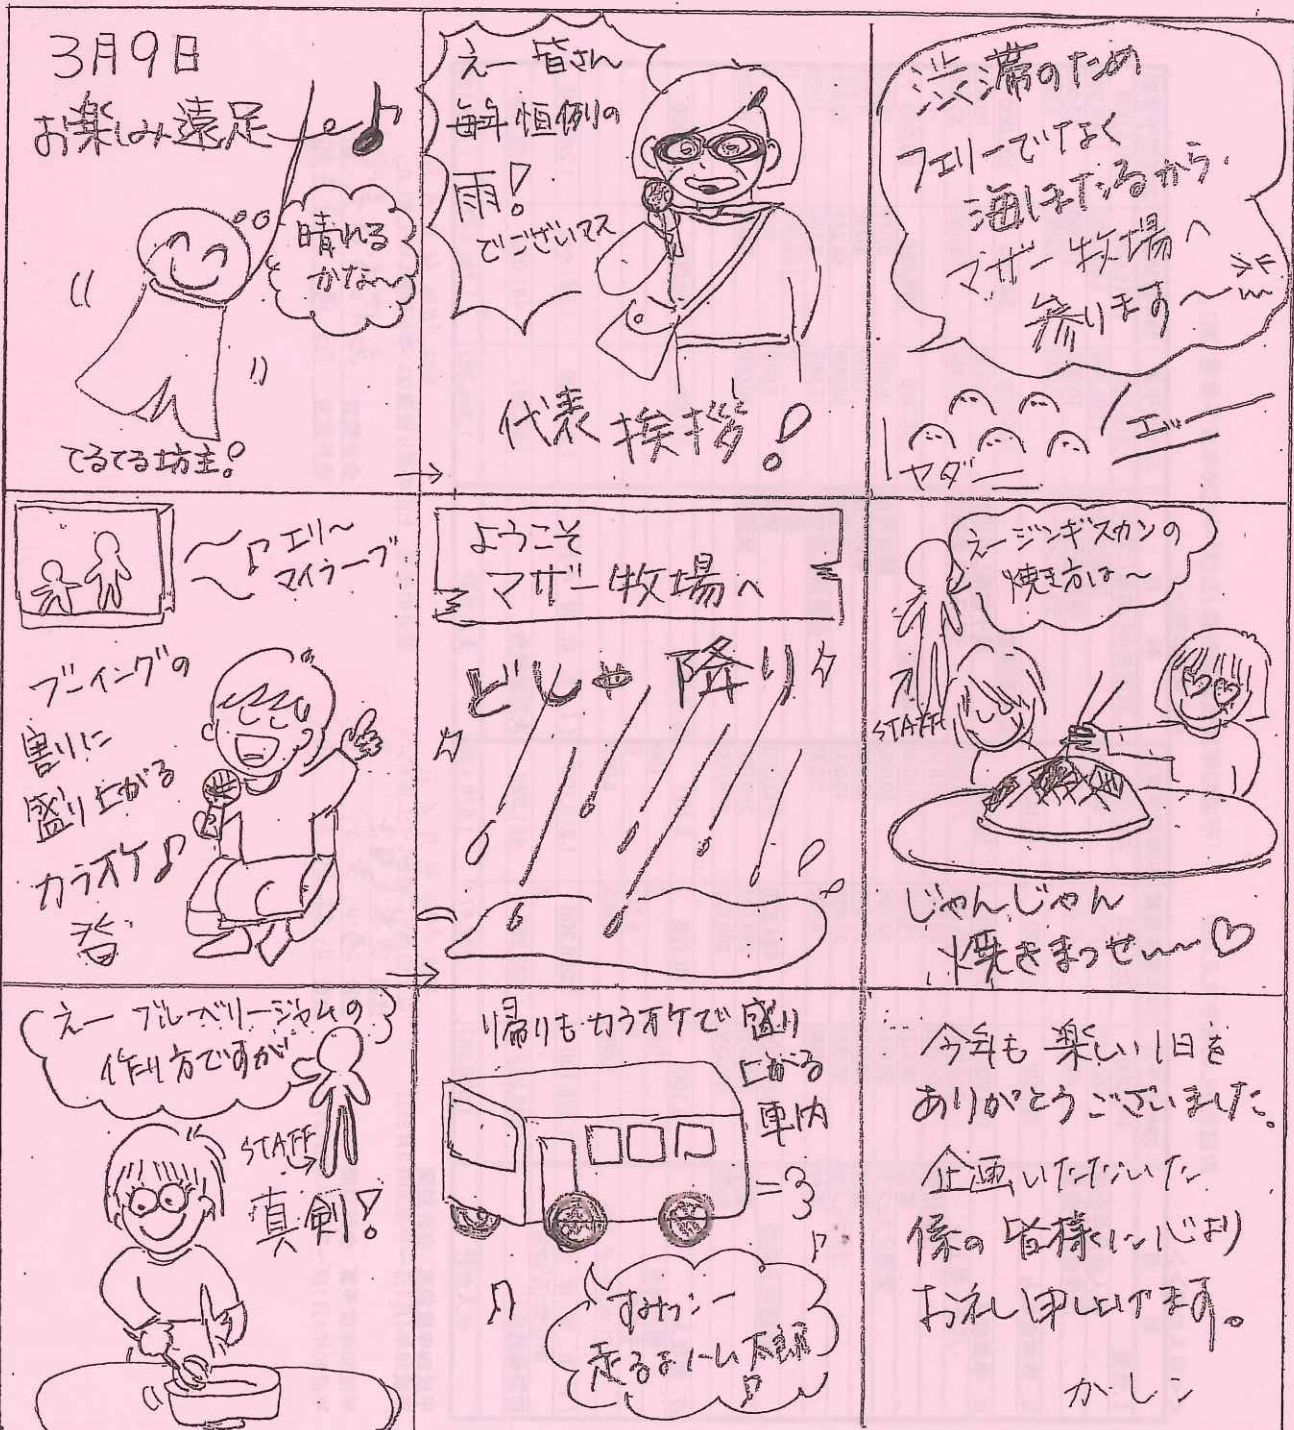 3月9日
お楽しみ遠足
晴れる
かな〜
てるてる坊主!
えー皆さん
毎年恒例の
雨!
でございマス
代表挨拶!
渋滞のため
フェリーでなく
海ほたるから
マザー牧場へ
参ります〜
エッー
ヤダー
エリ〜
マイラーブ
ブーイングの
割りに
盛り上がる
カラオケ♪
ようこそ
マザー牧場へ
どしゃ降り
えージンギスカンの
焼き方は〜
STAFF
じゃんじゃん
焼きまっせ〜♡
えー ブルーベリージャムの
作り方ですが
STAFF
真剣!
帰りもカラオケで盛り
上がる
車内
走るよ
太郎
今年も楽しい1日を
ありがとうございました。
企画いただいた
係の皆様に心より
お礼申し上げます。